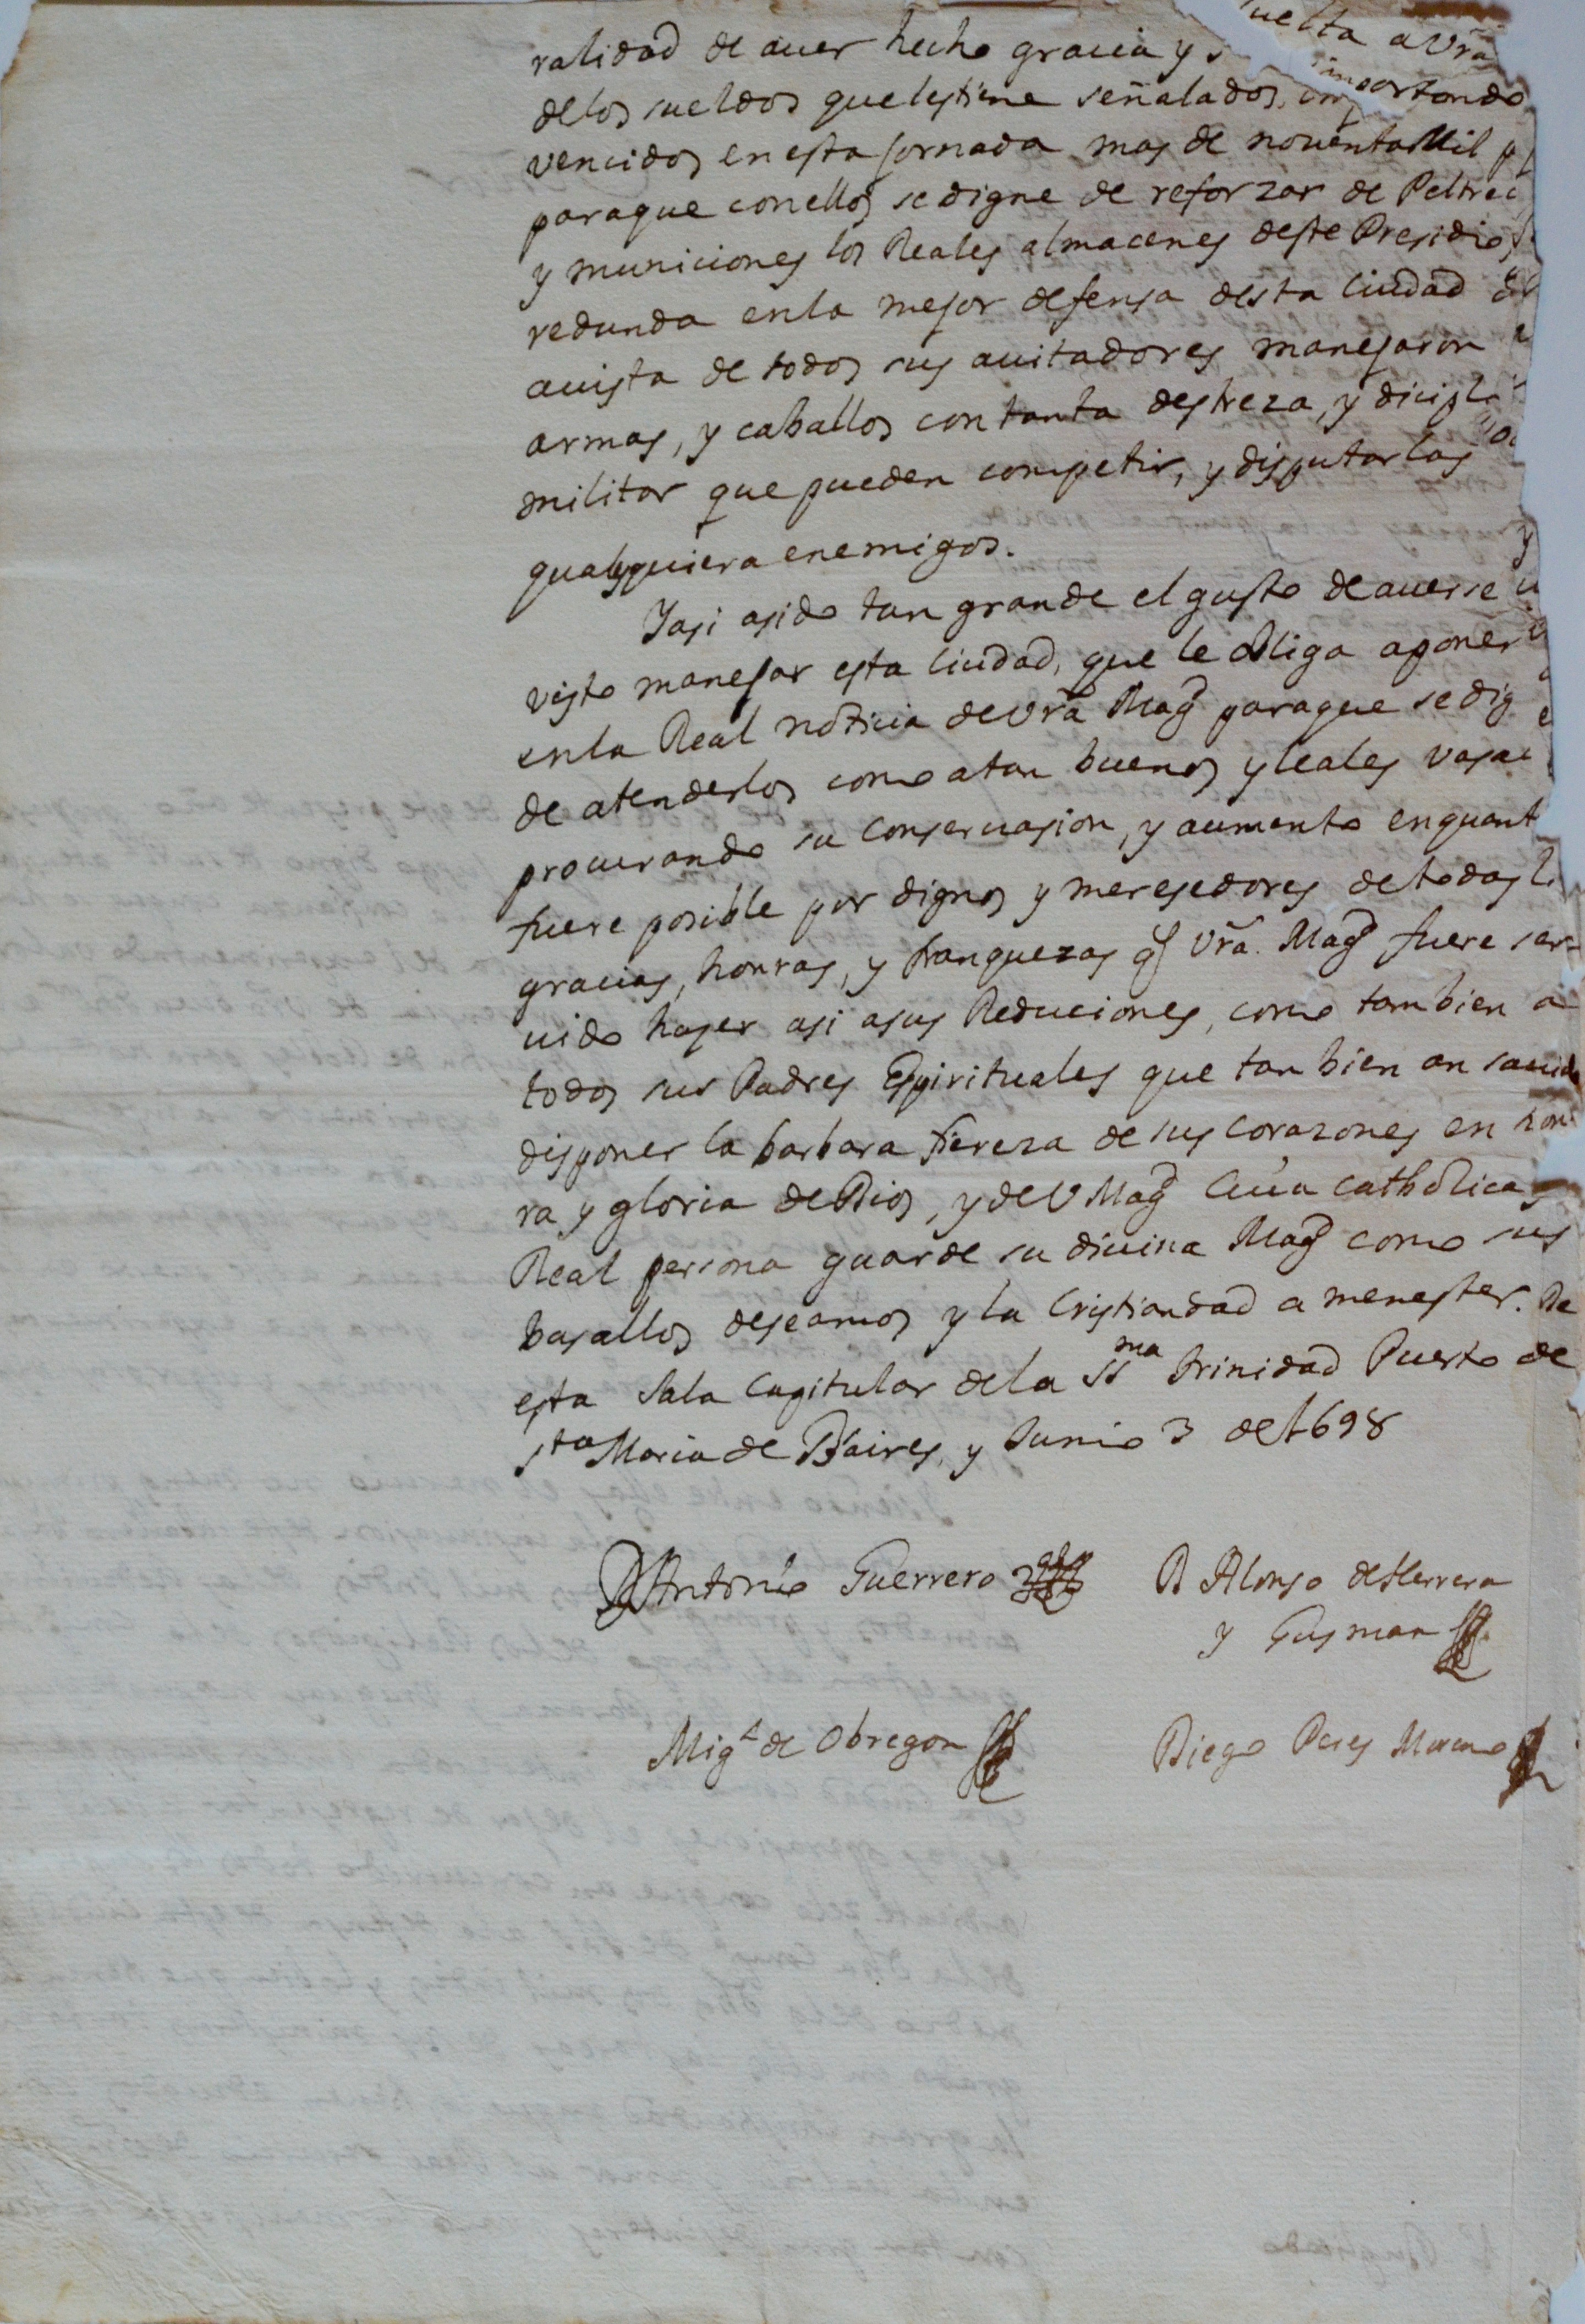 ralidad de auer hecho gracia y s uelta a Vrã
delos sueldos queles tiene señalados, importando
vencidos en esta jornada mas de nouenta Mil p
paraque conellos se digne de reforzar de Peltrec
y municiones los Reales almacenes deste Presidio
redunda enla mejor defensa desta Ciudad
auista de todos sus auitadores manejaron
armas, y caballos con tanta destreza, y dicipli
militar que pueden competir, y disputarlas
qualesquiera enemigos.
Yasi asido tan grande el gusto de auerse
visto manejar esta Ciudad, que le obliga aponer
enla Real noticia deVrã Magd paraque se dig
de atenderlos como atan buenos y leales vasal
procurando su Conseruasion, y aumento enquant
fuere posible por dignos y meresedores detodas l
gracias, honras, y franquezas q̃ Vrã. Magd fuere ser
uido haser asi asus Reduciones, como tambien a
todos sus Padres Espirituales que tan bien an sauido
disponer la barbara fiereza de sus Corazones en hon
ra y gloria de Dios, y de V Magd Cuia Catholica
Real persona guarde su diuina Magd como sus
basallos deseamos y la Cristiandad a menester. De
esta Sala Capitular dela SSma trinidad Puerto de
Sta Maria de Bs aires, y Junio 3 de 1698
D Antonio Guerrero
D Alonso de Herrera
y Gusman
Migl de Obregon
Diego Peres Moreno